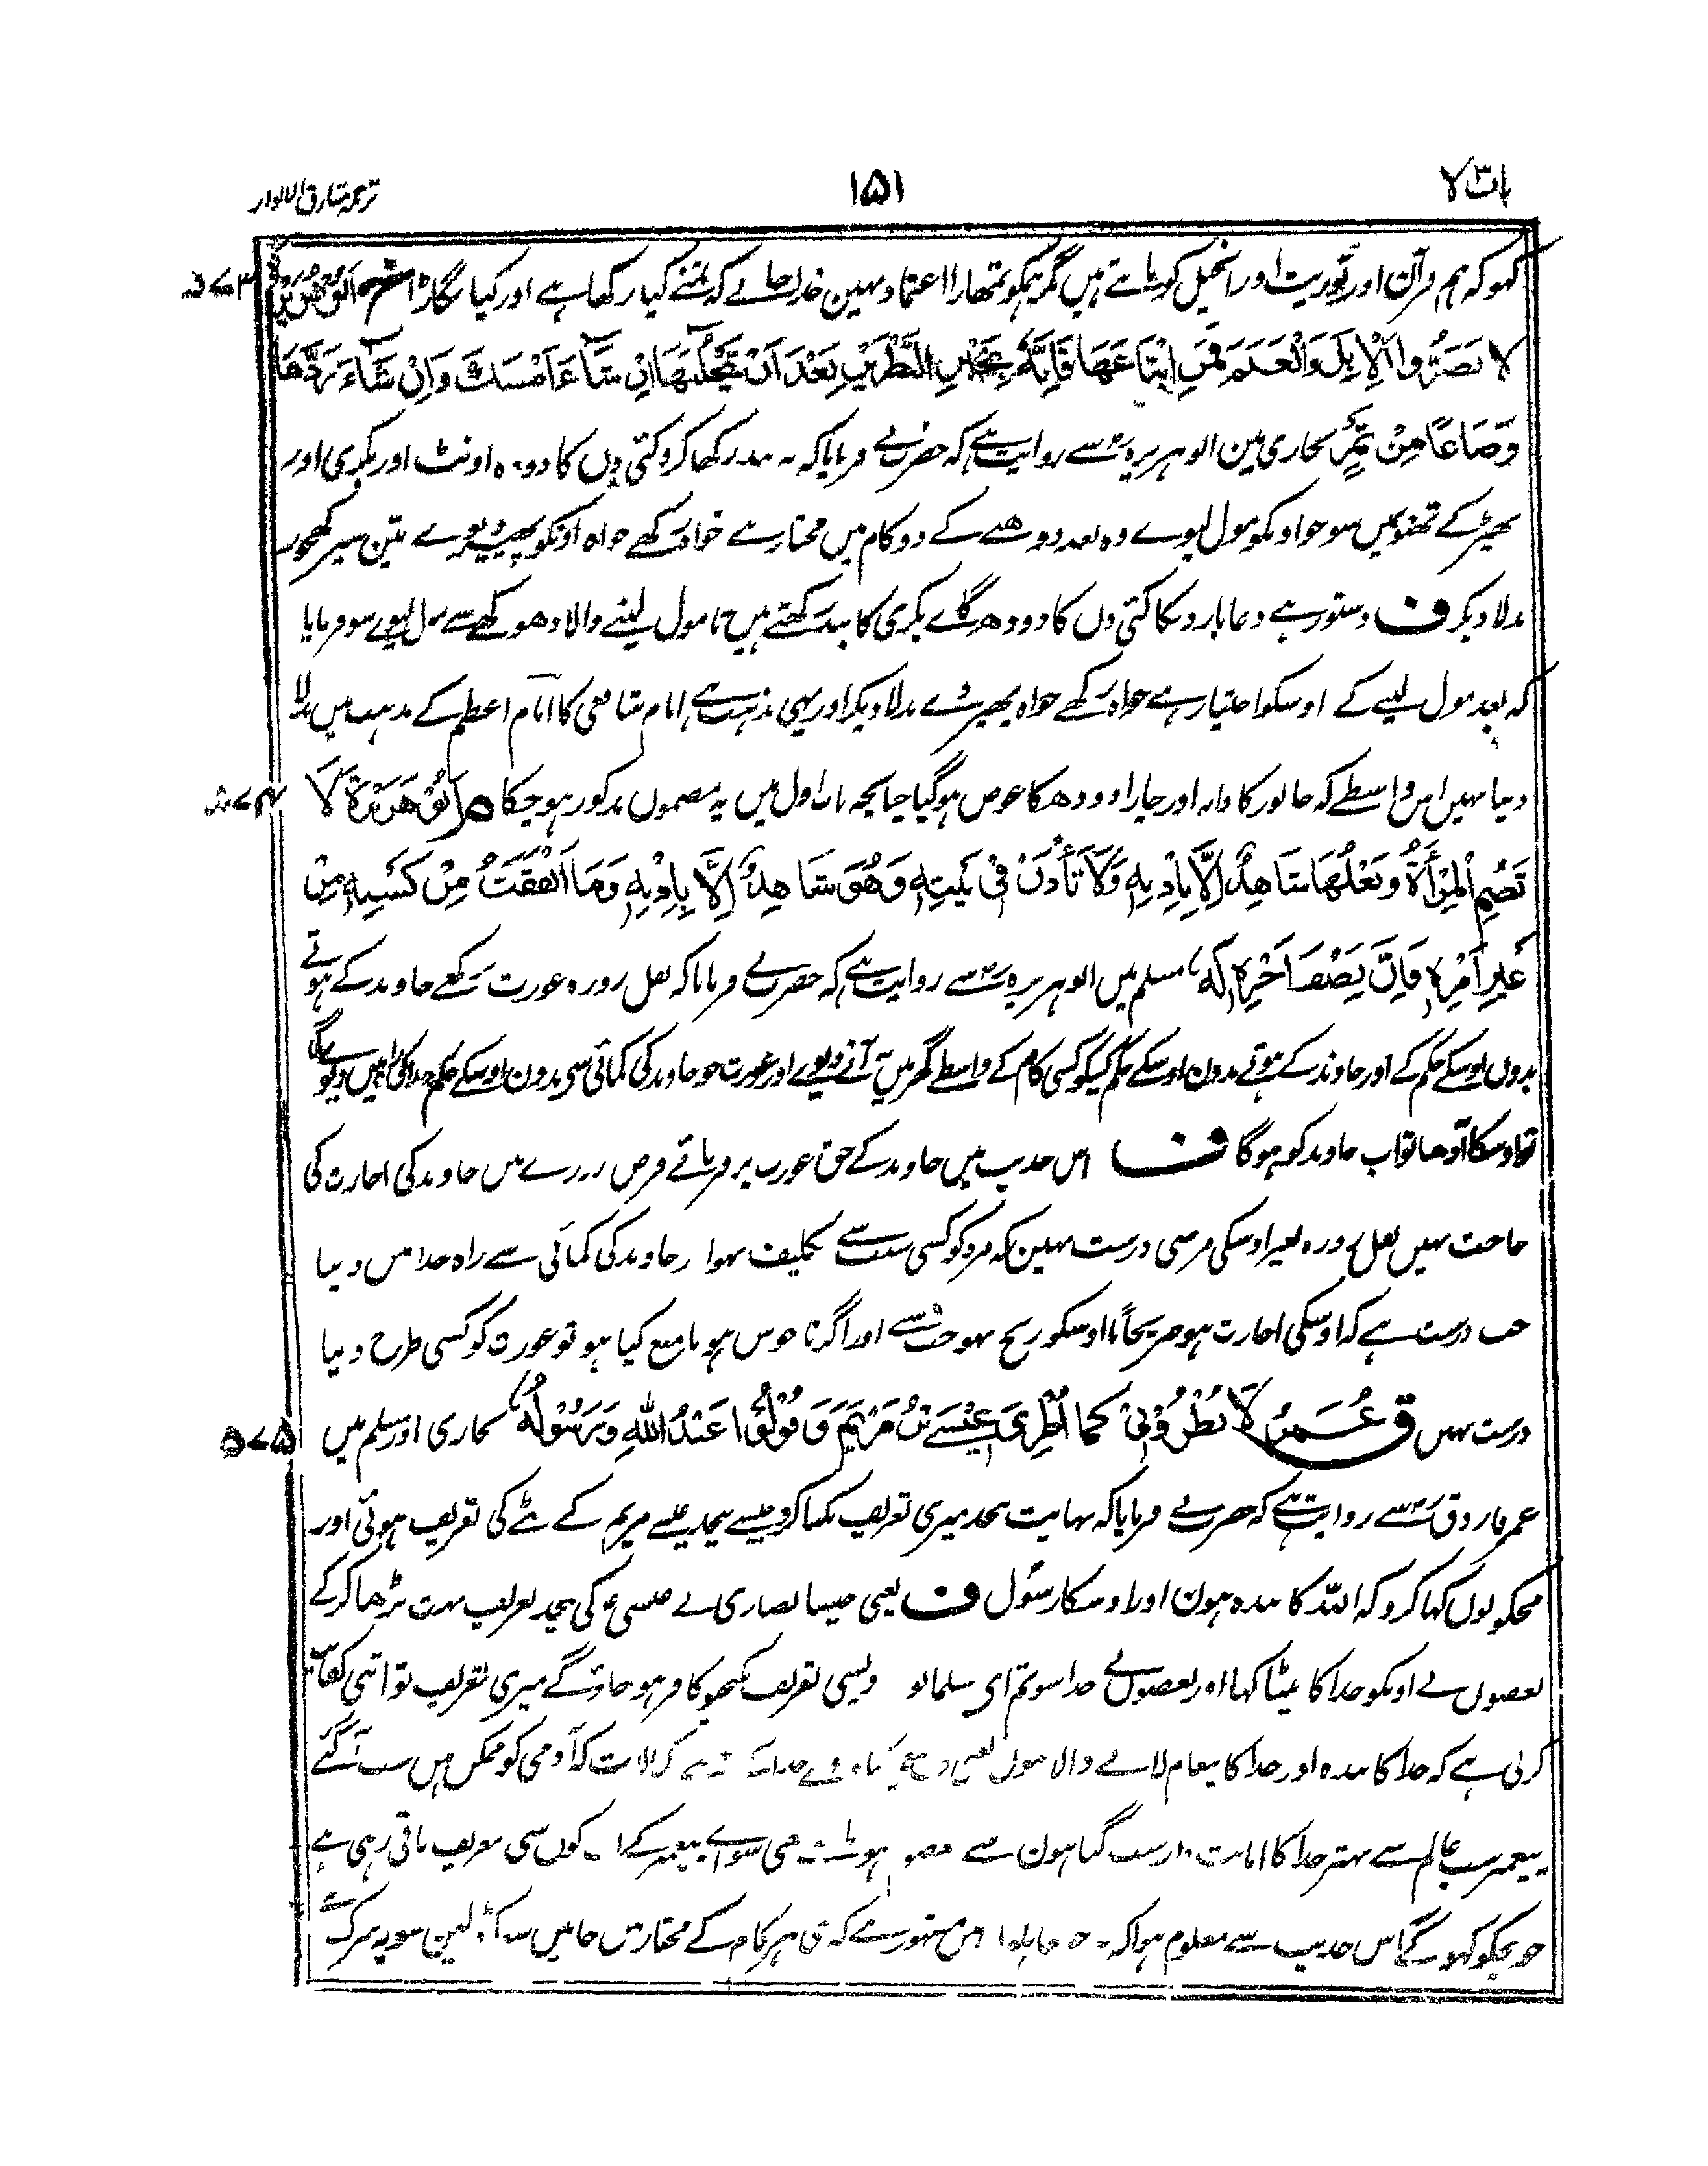 باب ٣ لا
١٥١
ترجمہ مشارق الانوار
کہو کہ ہم قرآن اور توریت اور انجیل کو مانتے ہیں مگر ہمکو تمھارا اعتماد نہین خدا جانے کہ تمنے کیا رکھا ہے اور کیا بگاڑا خ ابو هریرۃ
٥٧٣
لا تصروا الابل والغنم فمن ابتاعها فانه بخير النظرين بعد ان يحلبها ان شاء امسك وان شاء ردها
وصاعا من تمر بخاری مین ابو ہریرہ رض سے روایت ہے کہ حضرت نے فرمایا کہ نہ بند رکھا کرو کئی دن کا دودہ اونٹ اور بکری اور
بھیڑ کے تھنونمیں سو جو اونکو مول لیوے وہ بعد دوھنے کے دو کام میں مختار ہے خواہ رکھے خواہ اونکو پھیر دیوے تین سیر کھجور
بدلا دیکر ف دستور ہے دغابازونکا کئی دن کا دودھ گاے بکری کا بند رکھتے ہیں تا مول لینے والا دھوکھے سے مول لیوے سو فرمایا
کہ بعد مول لینے کے اوسکو اختیار ہے خواہ رکھے خواہ پھیر دے بدلا دیکر اور یہی مذہب ہے امام شافعی کا امام اعظم کے مذہب میں بدلا
دینا نہیں اس واسطے کہ جانور کا دانہ اور چارا دودھ کا عوض ہوگیا چنانچہ باب اول میں یہ مضمون مذکور ہو چکا م ابو هریرۃ لا
٥٧٤
تصم المرأة وبعلها شاهد الا باذنه ولا تأذن فى بيته وهو شاهد الا باذنه وما انفقت من كسبه من
غير امره فان نصف اجره له مسلم میں ابو ہریرہ رض سے روایت ہے کہ حضرت نے فرمایا کہ نفل روزہ عورت نہ رکھے خاوند کے ہوتے
بدون اوسکے حکم کے اور خاوند کے ہوتے بدون اوسکے حکم کیکو کسی کام کے واسطے گھر میں نہ آنے دیوے اور عورت جو خاوند کی کمائی سی بدون اوسکے حکم خدا کی راہ میں دیویگی
تو اوسکا آدھا ثواب خاوند کو ہوگا ف اس حدیث میں خاوند کے حق عورت پر فرمائے فرض روزے میں خاوند کی اجازت کی
حاجت نہیں نفل روزہ بغیر اوسکی مرضی درست نہین کہ مرد کو کسی سبب سے تکلیف نہو اور خاوند کی کمائی سے راہ خدا میں دینا
جب درست ہے کہ اوسکی اجازت ہو صریحاً یا اوسکو رنج نہو خرچ سے اور اگر ناخوش ہو یا منع کیا ہو تو عورت کو کسی طرح دینا
درست نہیں ق عمر لا تطرونى كما اطرى عيسى بن مريم وقولوا عبد الله ورسوله بخاری اور مسلم میں
٥٧٥
عمر فاروق رض سے روایت ہے کہ حضرت نے فرمایا کہ نہایت بیحد میری تعریف نکیا کرو جیسے بیحد عیسے مریم کے بیٹے کی تعریف ہوئی اور
مجکو یوں کہا کرو کہ اللہ کا بندہ ہون اور اوسکا رسول ف یعنی جیسا نصاری نے عیسی ع کی بیحد تعریف بہت بڑھا کر کے
بعضوں نے اونکو خدا کا بیٹا کہا اور بعضوں نے خدا سو تم ای مسلمانو ویسی تعریف نکیجو کافر ہو جاؤگے میری تعریف تو اتنی کفایت
کرنی ہے کہ خدا کا بندہ اور خدا کا پیغام لانے والا ہوں یعنی کمالات کہ آدمی کو ممکن ہیں سب آ گئے
پیغمبر سب عالم سے بہتر خدا کا امانت دار سب گناہون سے معصوم ہوتا سوائے پیغمبر کے کون سی تعریف باقی رہی ہے
جو مجکو کہو گے اس حدیث سے معلوم ہوا کہ مشہور ہے کہ نبی ہر کام کے مختار ہیں سو یہ شرک ہے